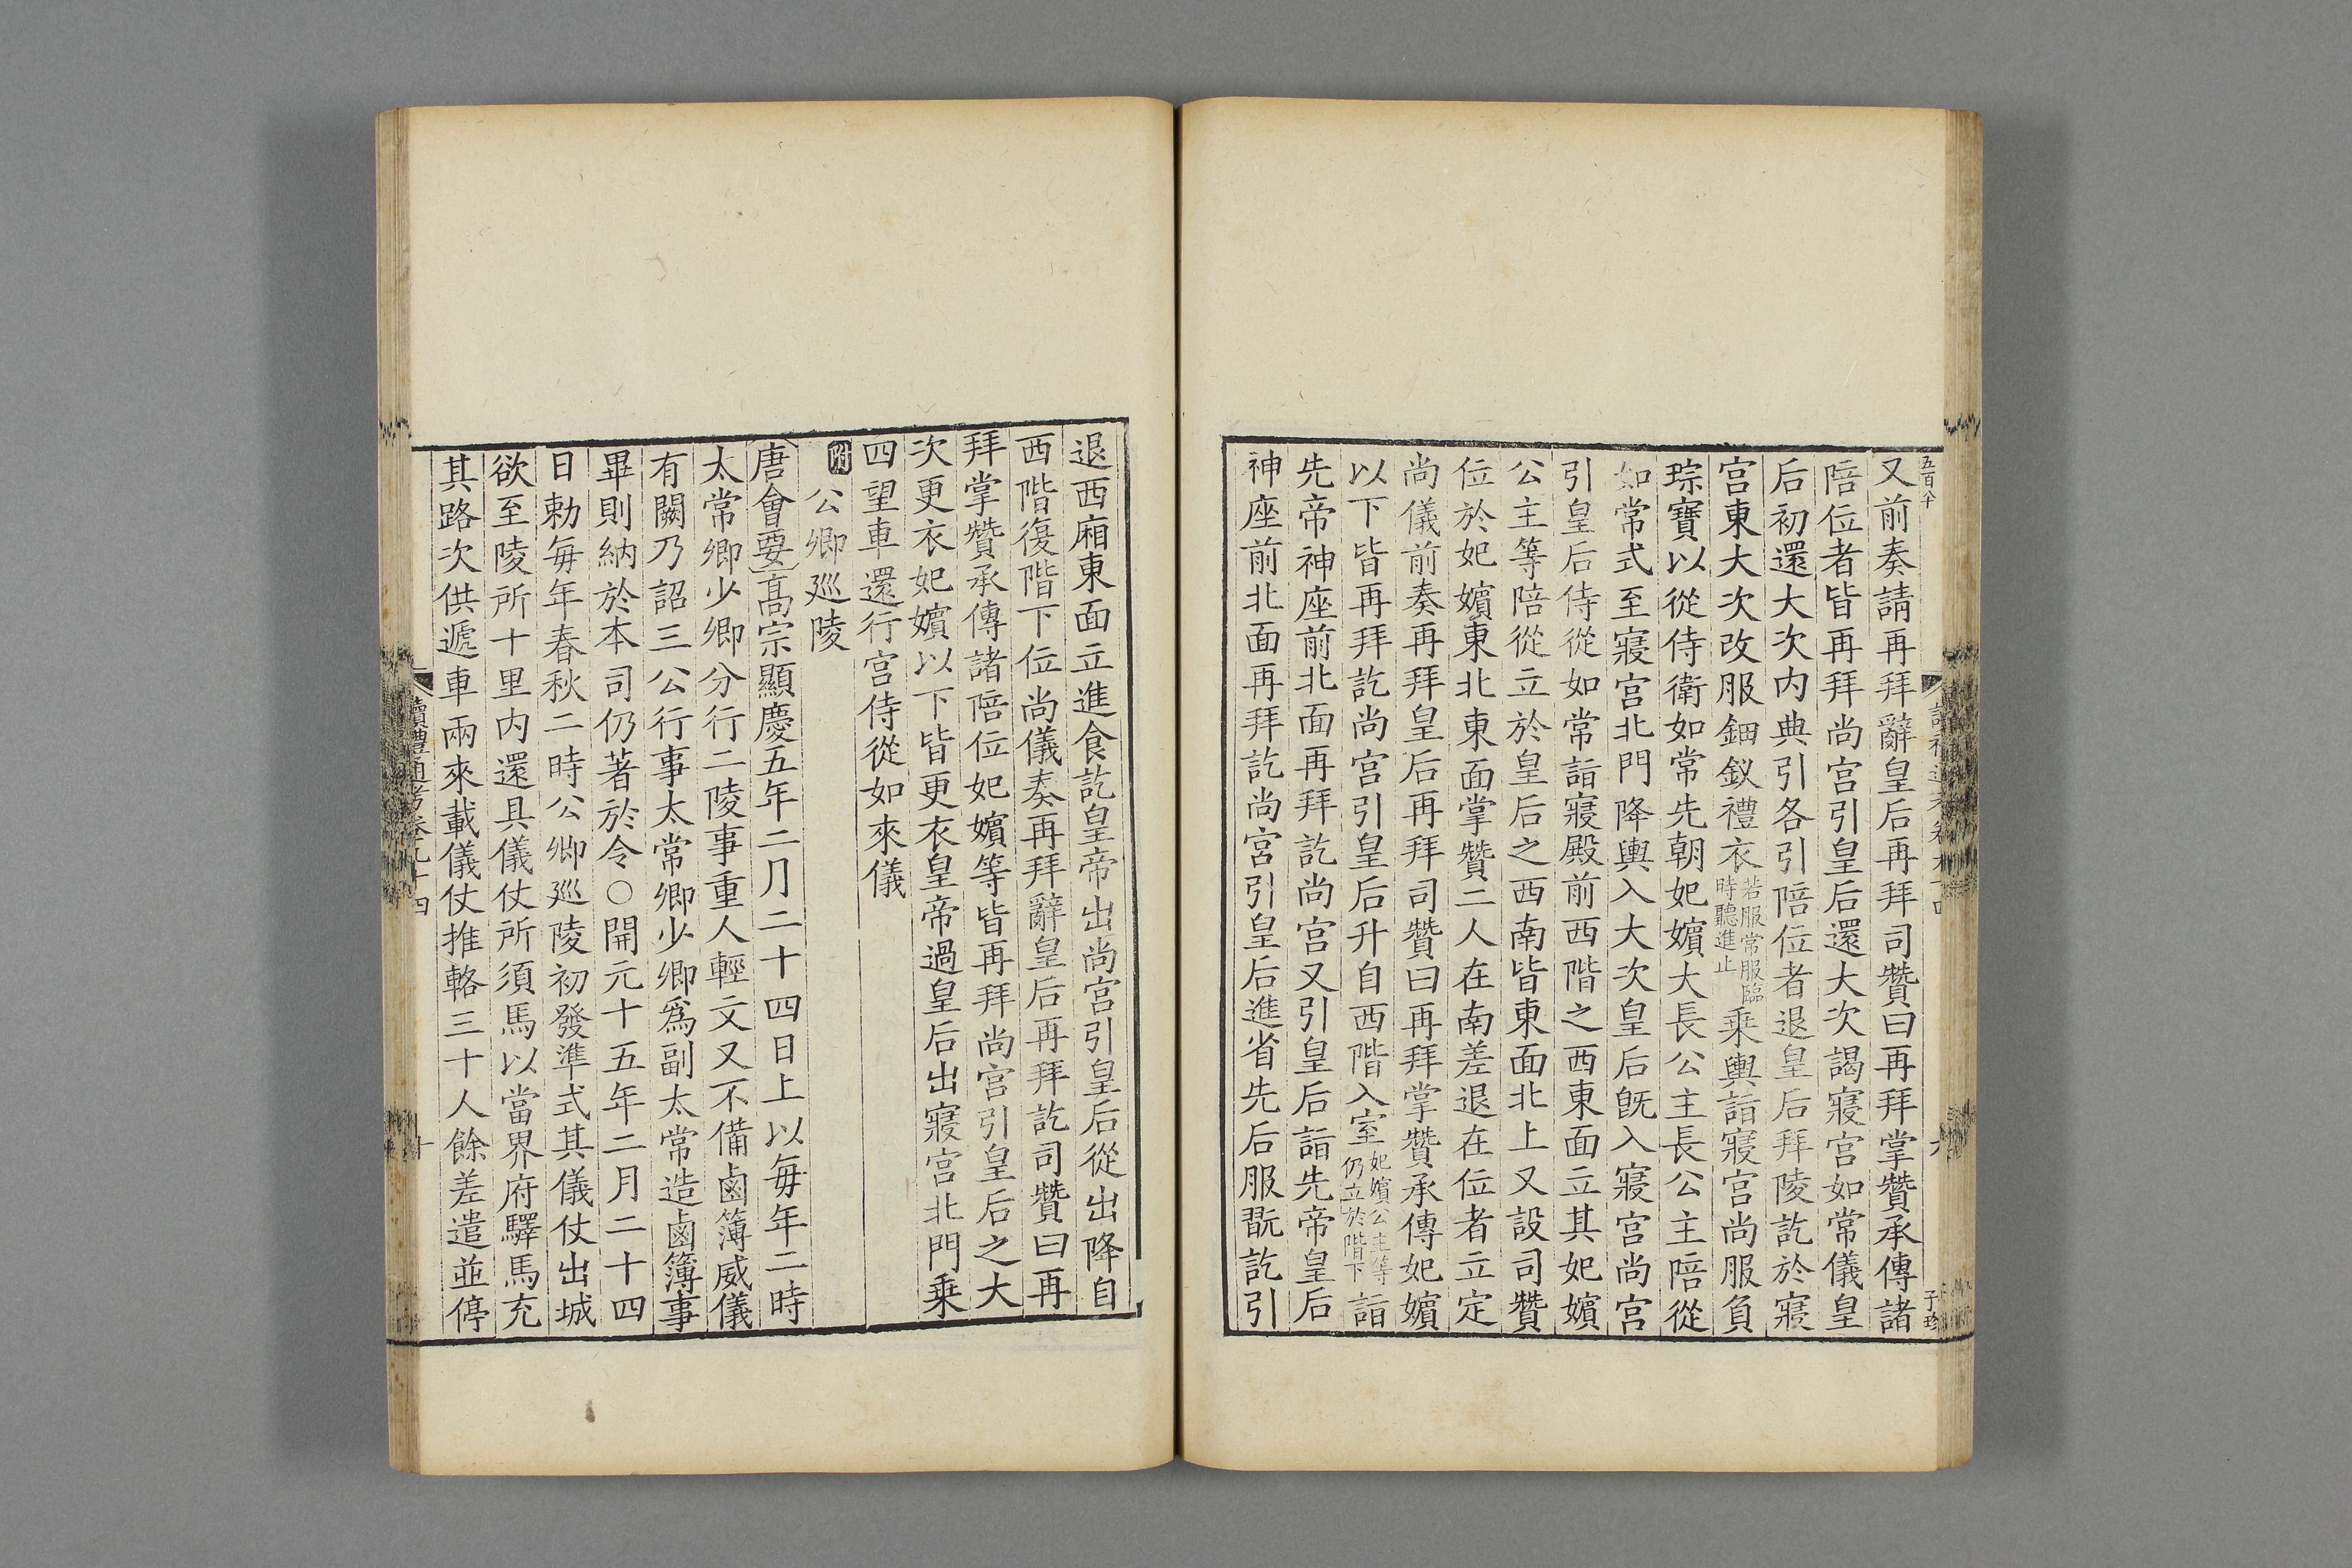 又前奏請再拜辭皇后再拜司贊曰再拜掌贊承傳諸
陪位者皆再拜尚宫引皇后還大次謁寢宫如常儀皇
后初還大次内典引各引陪位者退皇后拜陵訖於寢
宫東大次改服鈿釵禮衣若服常服臨時聽進止乘輿詣寢宫尚服負
琮寶以從侍衛如常先朝妃嬪大長公主長公主陪從
如常式至寢宫北門降輿入大次皇后旣入寢宫尚宫
引皇后侍從如常詣寢殿前西階之西東面立其妃嬪
公主等陪從立於皇后之西南皆東面北上又設司贊
位於妃嬪東北東面掌贊二人在南差退在位者立定
尚儀前奏再拜皇后再拜司贊曰再拜掌贊承傳妃嬪
以下皆再拜訖尚宫引皇后升自西階入室妃嬪公主等仍立於階下詣
先帝神座前北面再拜訖尚宫又引皇后詣先帝皇后
神座前北面再拜訖尚宫引皇后進省先后服翫訖引
退西廂東面立進食訖皇帝出尚宫引皇后從出降自
西階復階下位尚儀奏再拜辭皇后再拜訖司贊曰再
拜掌贊承傳諸陪位妃嬪等皆再拜尚宫引皇后之大
次更衣妃嬪以下皆更衣皇帝過皇后出寢宫北門乘
四望車還行宫侍從如來儀
附 公卿廵陵
唐會要高宗顯慶五年二月二十四日上以每年二時
太常卿少卿分行二陵事重人輕文又不備鹵簿威儀
有闕乃詔三公行事太常卿少卿爲副太常造鹵簿事
畢則納於本司仍著於令○開元十五年二月二十四
日勅每年春秋二時公卿廵陵初發準式其儀仗出城
欲至陵所十里内還具儀仗所須馬以當界府驛馬充
其路次供遞車兩來載儀仗推輅三十人餘差遣並停
讀禮通考卷九十四
十